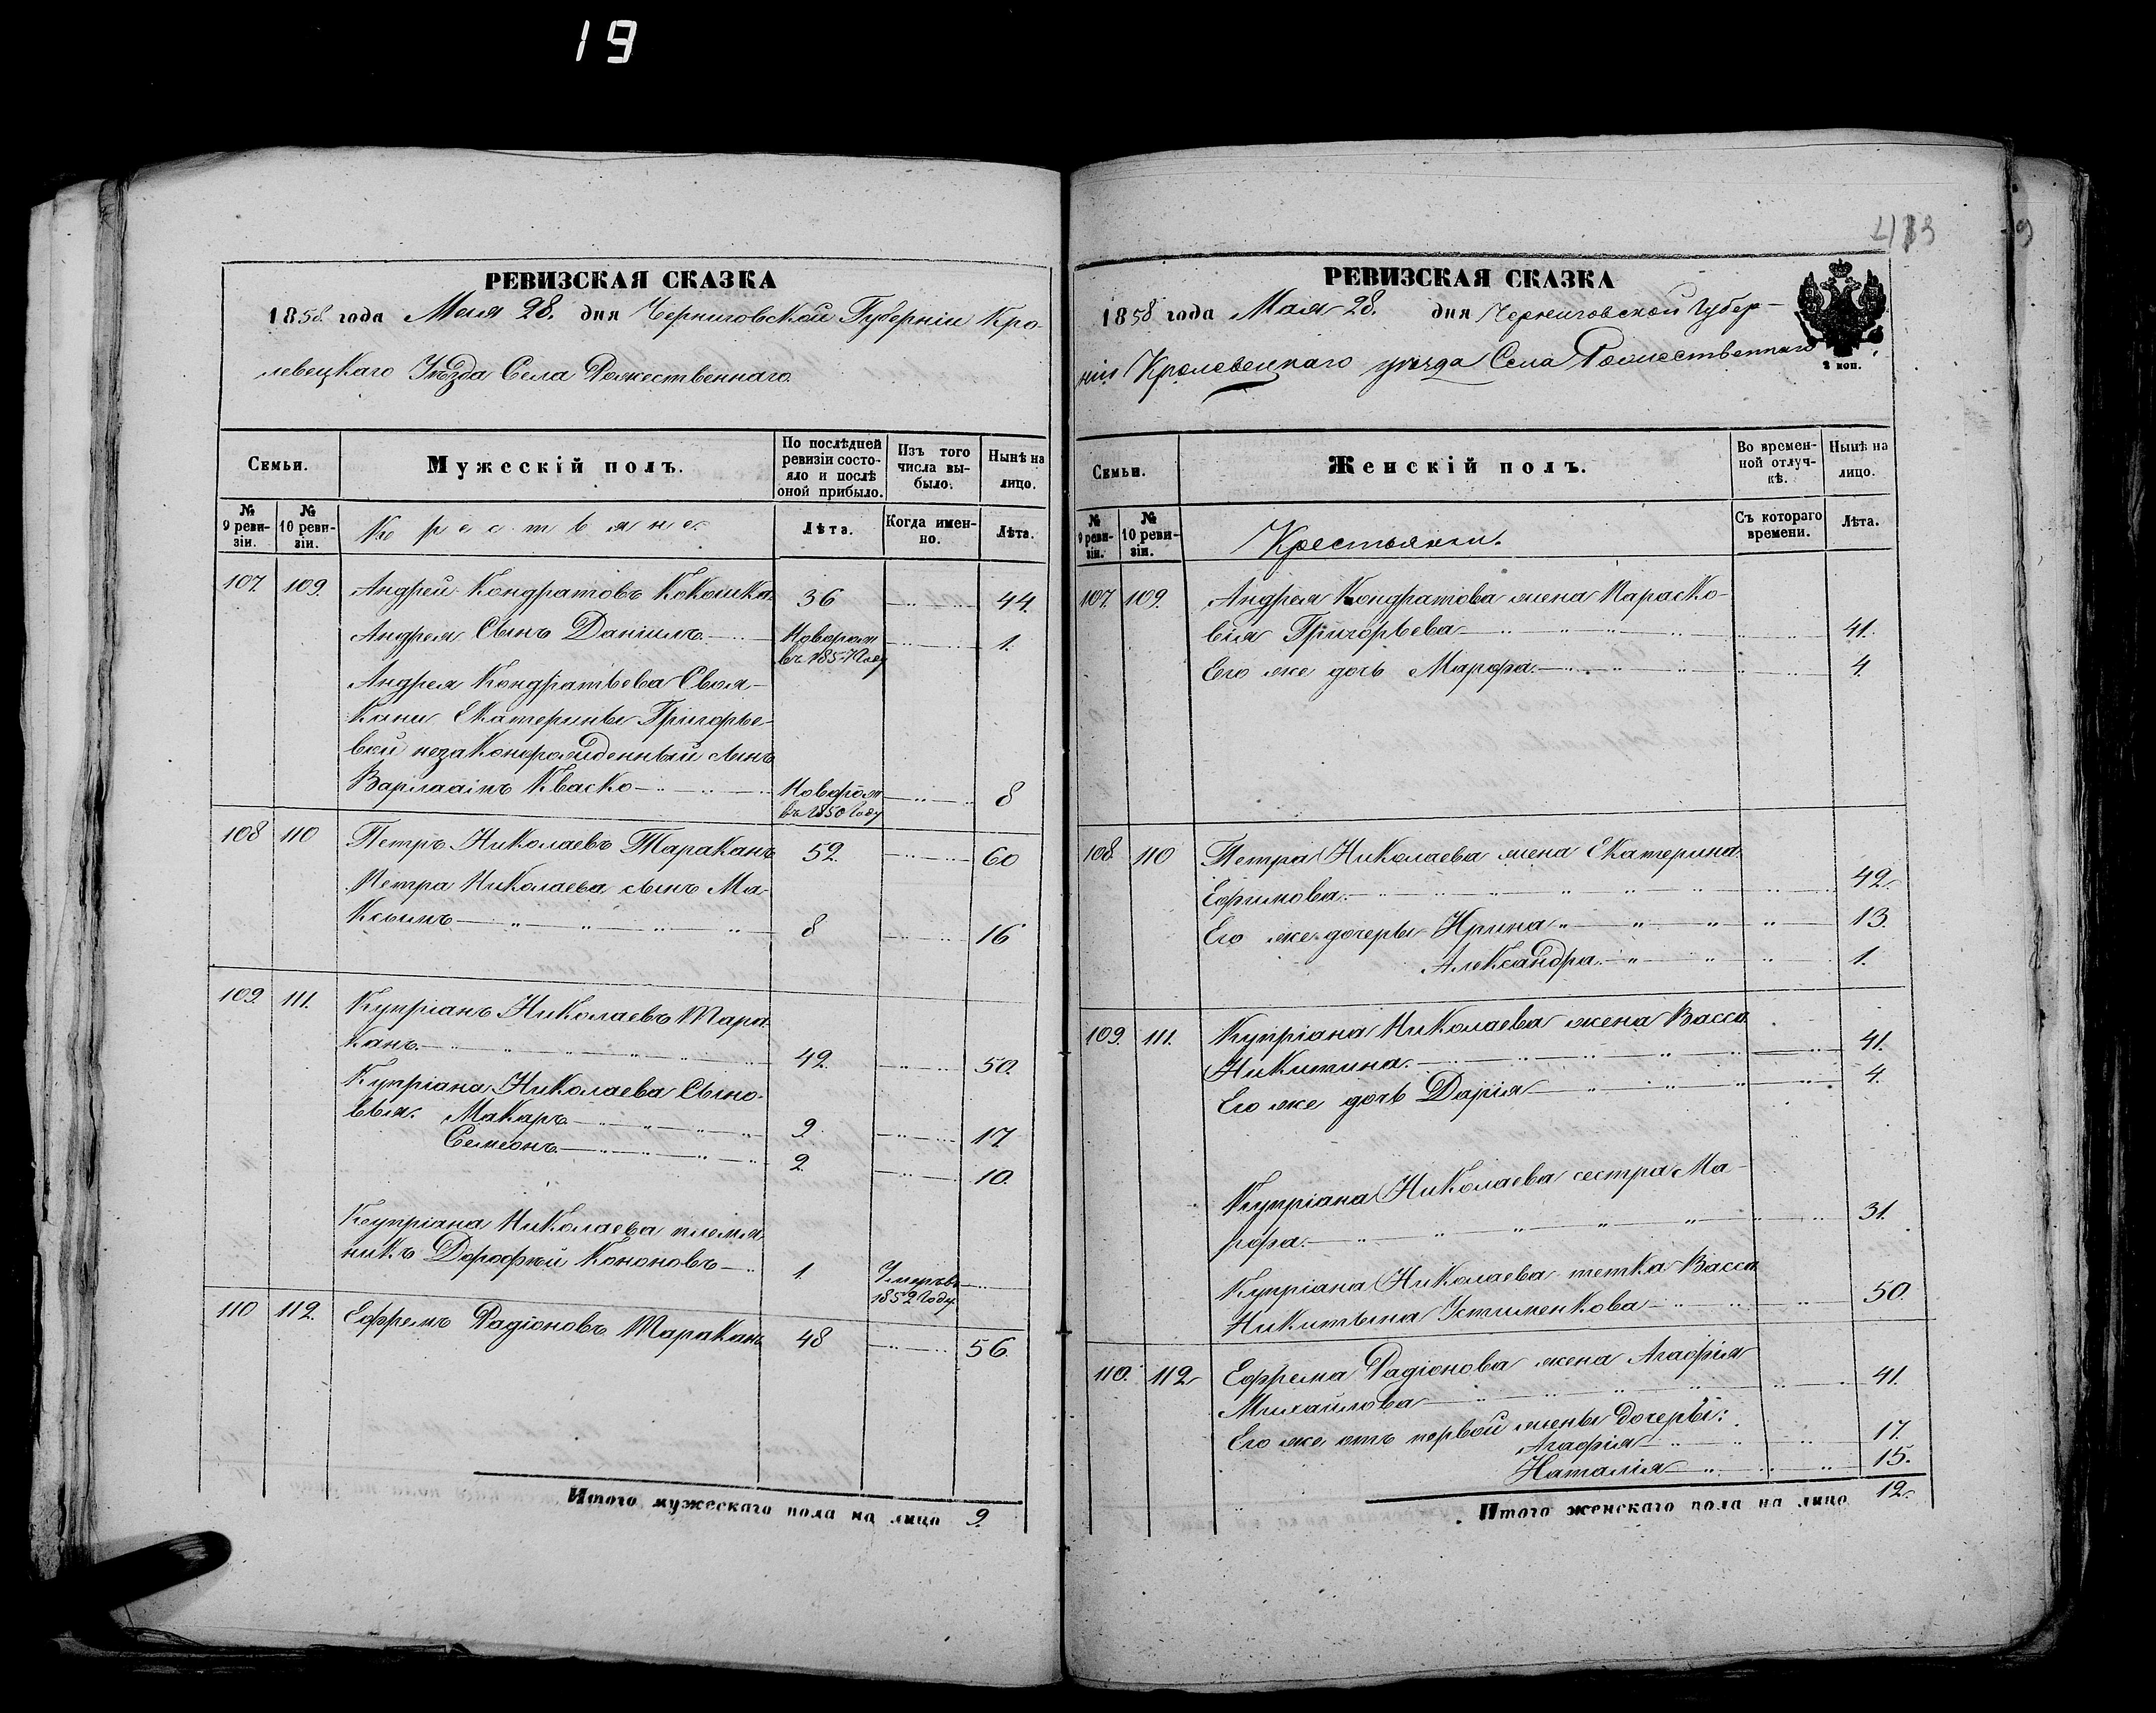 19
РЕВИЗСКАЯ СКАЗКА
1858 года Мая 28. дня Черниговской Губерніи Кро-
левецкаго Уѣзда Села Рожественнаго.
Семьи.
Мужескій полъ.
По послѣдней ревизіи состо-
яло и послѣ
оной прибыло.
Изъ того
числа вы-
было.
Нынѣ на
лицо.
№
9 реви-
зіи.
№
10 реви-
зіи.
Крестьяне.
Лѣта.
Когда имен-
но.
Лѣта.
107. 109. Андрей Кондратовъ Кокошка 36 44.
Андрея Сынъ ДаніилъНоворож 1.
въ 1857 Году
Андрея Кондратьева Своя-
кини Екатерины Григорье-
вой незаконорожденный сынъ
Варлаамъ Кваско Новорож 8
въ 1850 Году
108 110 Петръ Николаевъ Тараканъ 52. 60
Петра Николаева сынъ Ма-
ксымъ 8 16
109. 111. Купріанъ Николаевъ Тара-
канъ. 42. 50.
Купріана Николаева Сыно-
вья: Макаръ 9. 17.
Семеонъ 2. 10.
Купріана Николаева племя-
никъ Дорофѣй Кононовъ 1. Умеръ въ
1852 Году
110 112. Ефремъ Радіоновъ Тараканъ 48 56.
Итого мужескаго пола на лицо 9.
РЕВИЗСКАЯ СКАЗКА
1858 года Мая 28. дня Черниговской Губер-
ніи Кролевецкаго уѣзда Села Рожественнаго
2 коп.
Семьи.
Женскій полъ.
Во времен-
ной отлуч-
кѣ.
Нынѣ на
лицо.
№
9 реви-
зіи.
№
10 реви-
зіи.
Крестьянки.
Съ котораго
времени.
Лѣта.
107. 109. Андрея Кондратова жена Параско-
вія Григорьева 41.
Его же дочь Марфа. 4.
108. 110 Петра Николаева жена Екатерина
Ефимова. 42.
Его же дочеры Ирина 13.
Александра. 1.
109. 111. Купріана Николаева жена Васса
Никитина. 41.
Его же дочь Дарія 4.
Купріана Николаева сестра Ма-
рфа. 31.
Купріана Николаева тетка Васса
Никитына Устименкова 50.
110. 112 Ефрема Радіонова жена Агафія
Михайлова 41.
Его же отъ первой жены дочеры:
Агафія 17.
Наталія 15.
Итого женскаго пола на лицо 12.